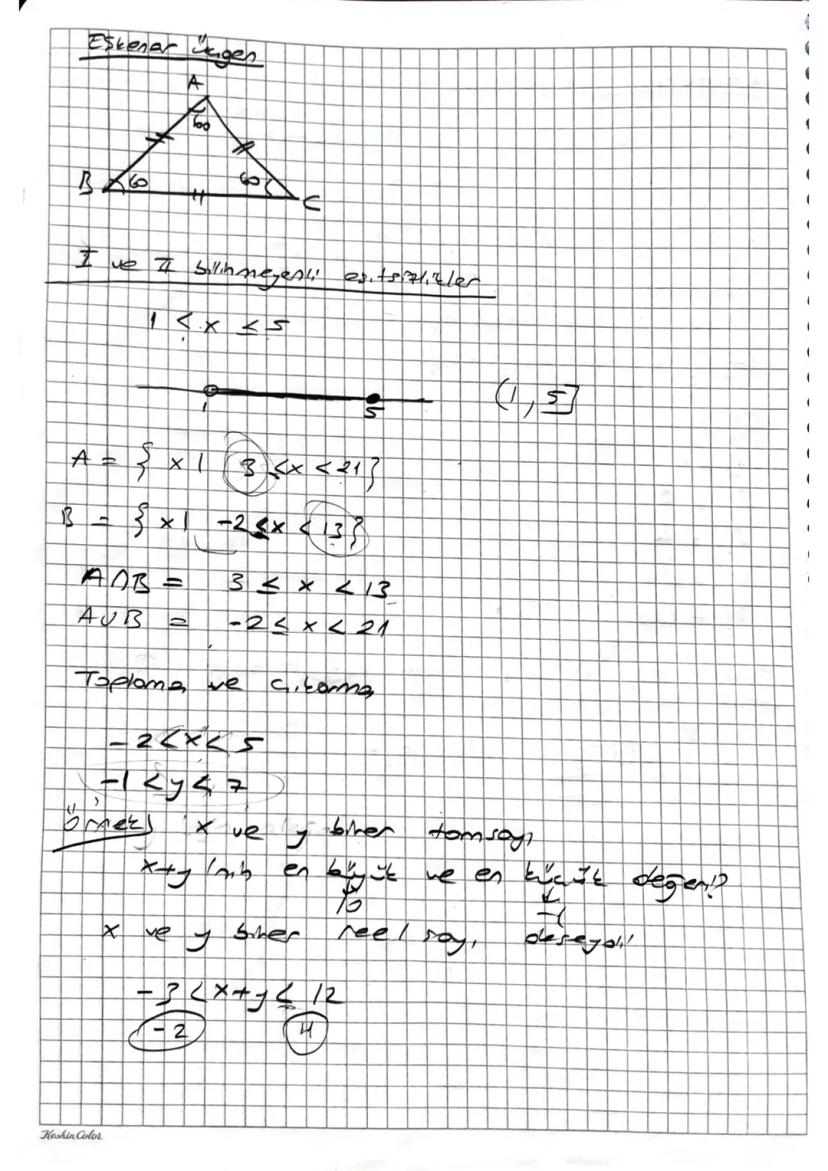 Eşkenar üçgen
A
60
B 60 60 C
I ve II bilinmeyenli eşitsizlikler
1 < x ≤ 5
1 5 (1, 5]
A = { x | 3 ≤ x < 21}
B = { x | -2 ≤ x < 13}
A∩B = 3 ≤ x < 13
A∪B = -2 ≤ x < 21
Toplama ve çıkarma
-2 < x < 5
-1 < y ≤ 7
Örnek) x ve y birer tamsayı
x+y 'nin en büyük ve en küçük değeri?
10 -1
x ve y birer reel sayı deseydi
-3 < x+y ≤ 12
-2
KeskinColor